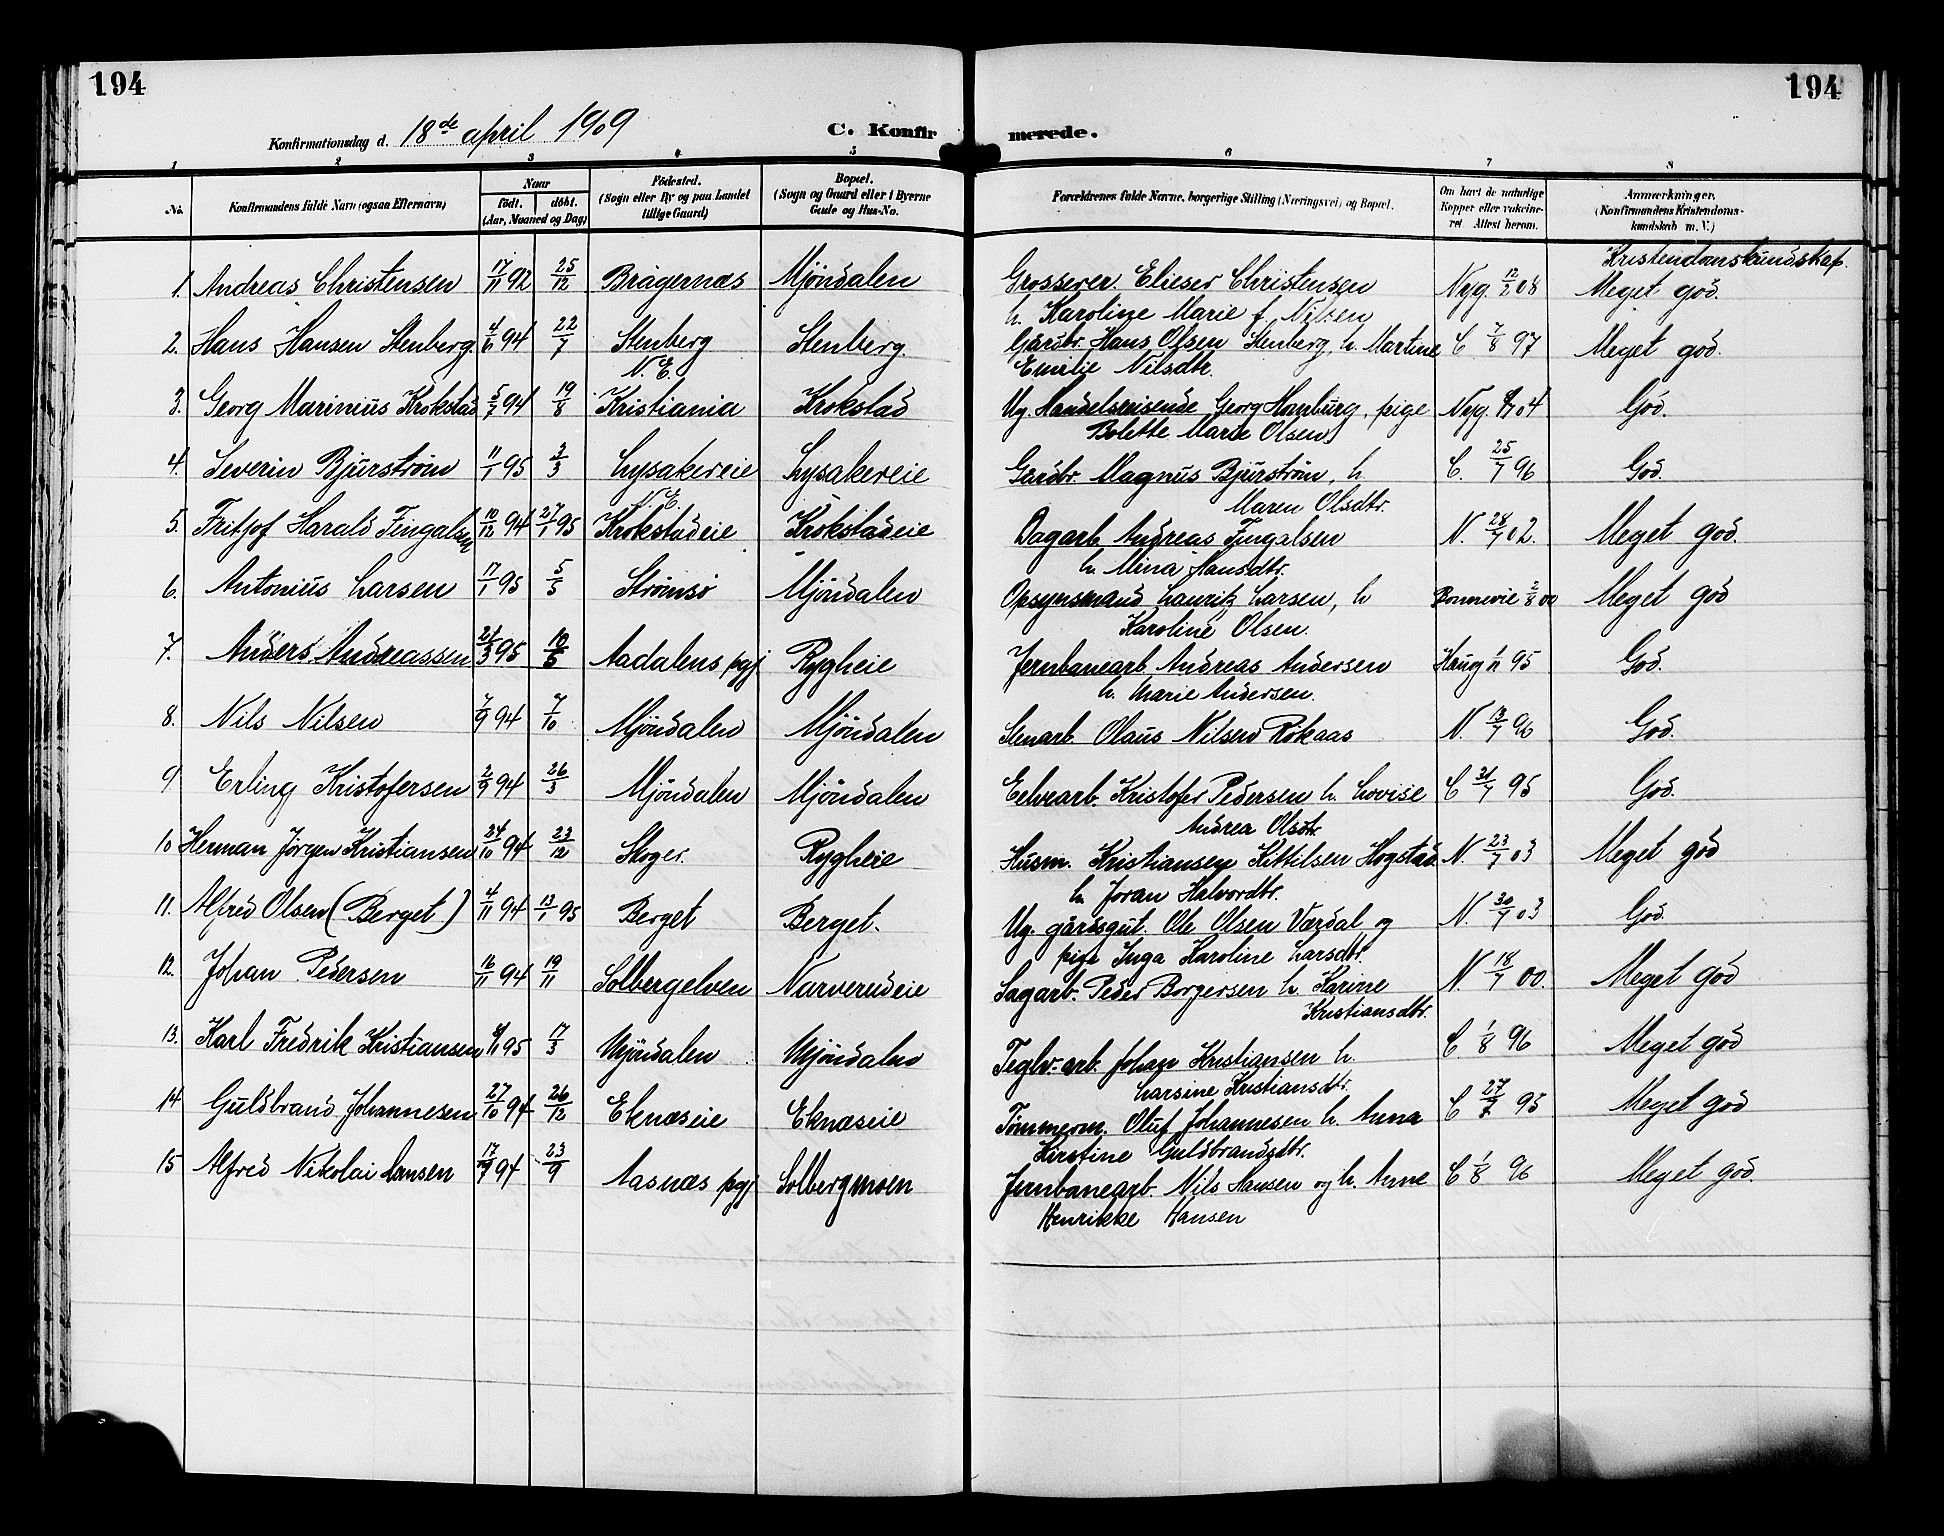 194
194
Konfirmationsdag d. 18de april 1909
C. Konfirmerede.
1 2 3 4 5 6 7 8
No.
Konfirmandens fulde Navn (ogsaa Efternavn)
Naar
født. døbt.
(Aar, Maaned og Dag)
Fødested.
(Sogn eller By og paa Landet
tillige Gaard)
Bopæl.
(Sogn og Gaard eller i Byerne
Gade og Hus-No.
Forældrenes fulde Navne, borgerlige Stilling (Næringsvei) og Bopæl.
Om havt de naturlige
Kopper eller vakcine-
ret Attest herom.
Anmærkninger,
(Konfirmandens Kristendoms-
kundskab m. V.)
Kristendomskundskap.
1. Andreas Christensen 17/11 92 25/12 Bragernæs Mjøndalen Grosserer Elieser Christensen Nyg. 12/2 08 Meget god.
h. Karoline Marie f. Nilsen
2. Hans Hansen Stenberg 4/6 94 22/7 Stenberg Stenberg. Gårdbr. Hans Olsen Stenberg, h. Martine C 7/8 97 Meget god.
N.E. Emilie Nilsdtr.
3. Georg Marinius Krokstad 5/7 94 19/8 Kristiania Krokstad Ug. Handelsreisende Georg Homburg, pige Nyg. 04 God.
Bolette Marie Olsen
4. Severin Bjurstrøm 11/1 95 3/3 Lysakereie Lysakereie Gardbr. Magnus Bjurstrøm, h C. 25/7 96 God.
N.E. Maren Olsdtr.
5. Fritjof Harald Fingalsen 10/12 94 27/1 95 Krokstadeie Krokstadeie Dagarb. Andreas Fingalsen N. 28/7 02. Meget god.
h. Mina Hansdtr.
6. Antonius Larsen 17/1 95 5/5 Strømsø Mjøndalen Opsynsmand Lauritz Larsen, h Bonnevie 2/8 00 Meget god
Karoline Olsen.
7. Anders Andreassen 21/3 95 10/5 Aadalens pgj. Rygheie Jernbanearb. Andreas Andersen Haug 1/11 95 God.
h. Marie Andersen.
8. Nils Nilsen 7/9 94 7/10 Mjøndalen Mjøndalen Stenarb. Olaus Nilsen Rokaas N. 13/7 96 God.
9 Erling Kristofersen 2/9 94 26/3 Mjøndalen Mjøndalen Elvearb. Kristofer Pedersen h. Lovise C 31/7 95 God.
Andrea Olsdtr.
10 Herman Jørgen Kristiansen 24/10 94 23/12 Skoger. Rygheie Husm. Kristiansen Kittilsen Hogstad N. 23/7 03 Meget god
h. Joran Halvordtr.
11. Alfred Olsen (Berget) 4/11 94 13/1 95 Berget Berget. Ug. gårdsgut. Ole Olsen Værdal og N. 30/7 03 God.
pige Inga Karoline Larsdtr.
12. Johan Pedersen 16/11 94 19/11 Solbergelven Narverudeie Sagarb. Peder Borgersen h. Karine N. 18/7 00. Meget god
Kristiansdtr.
13. Karl Fredrik Kristiansen 95 17/3 Mjøndalen Mjøndalen Teglv.-arb. Johan Kristiansen h. C. 1/8 96 Meget god
Larsine Kristiansdtr.
14 Guldbrand Johannesen 27/10 94 26/12 Eknæseie Eknæseie Tømmerm. Oluf Johannesen h. Anna C 27/7 95 Meget god
Kirstine Guldbrandsdtr.
15 Alfred Nikolai Hansen 17/7 94 23/9 Aasnæs pgj Solbergmoen Jernbanearb. Nils Hansen og h. Anne C 1/8 96 Meget god.
Henrikke Hansen